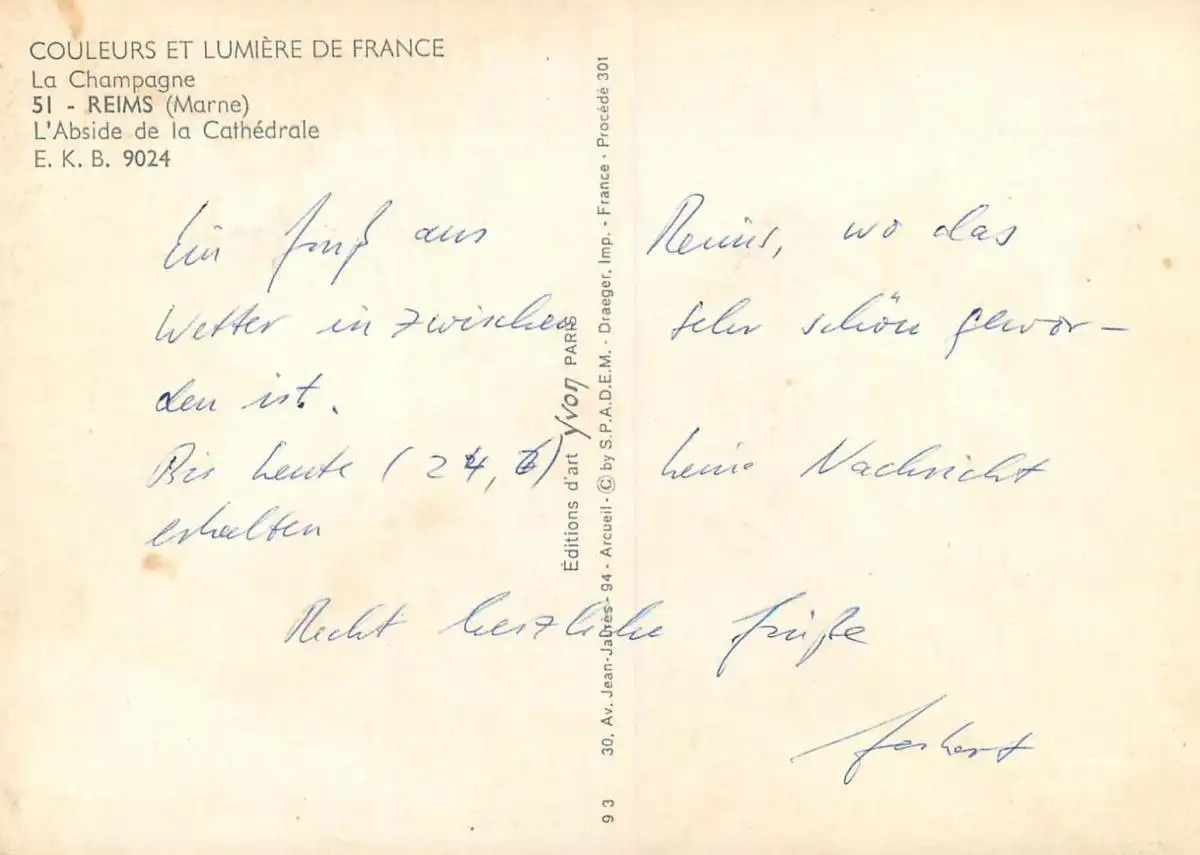 COULEURS ET LUMIÈRE DE FRANCE
La Champagne
51 - REIMS (Marne)
L'Abside de la Cathédrale
E. K. B. 9024
Ein Gruß aus Reims, wo das
Wetter inzwischen sehr schön gewor-
den ist.
Bis heute (24,6) keine Nachricht
erhalten
Recht herzliche Grüße
Éditions d'art Yvon PARIS
93 30, Av. Jean-Jaurès - 94 - Arcueil - © by S.P.A.D.E.M. - Draeger, Imp. - France - Procédé 301